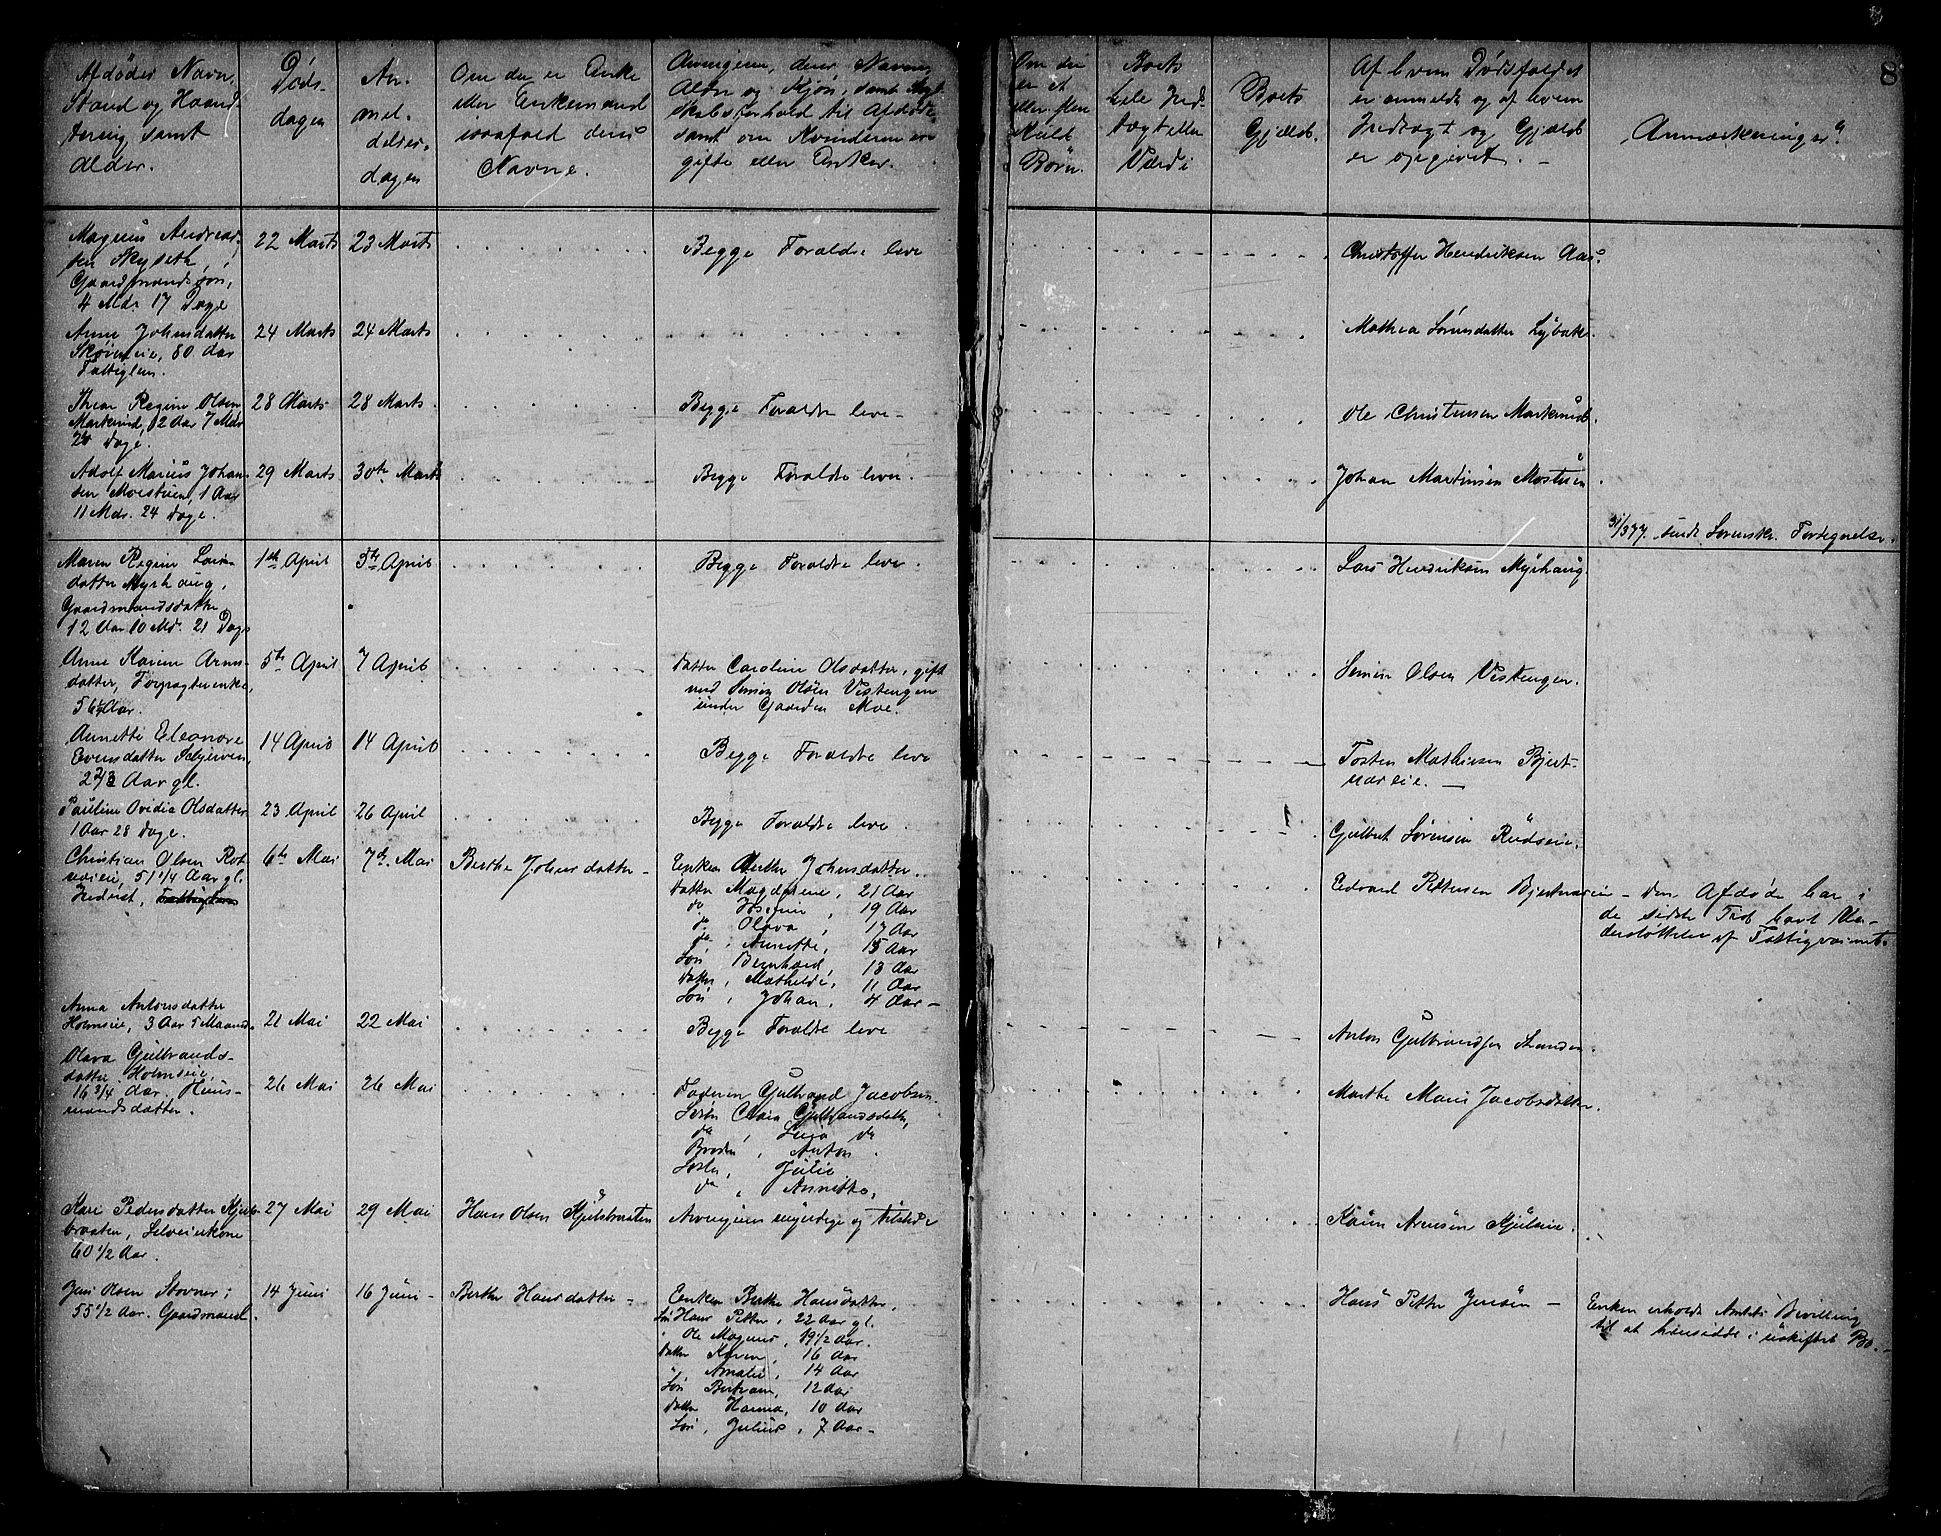 8
Afdødes Navn,
Stand og Haand-
tering, samt
Alder.
Døds-
dagen
An-
mel-
delses-
dagen
Om der er Enke
eller Enkemand
isaafald deres
Navne.
Arvingerne, deres Navne,
Alder og Kjøn, samt
skabsforhold til Afdøde
samt om Kvinderne ere
gifte eller Enker.
Om der
er et
eller flere
Kuld
Børn.
Boets
hele Ind-
tægt eller
Værdi
Boets
Gjæld.
Af hvem Dødsfaldet
er anmeldt og af hvem
Indtægt og Gjæld
er opgivet. -
Anmærkninger
8
Magnus Andreas-
sen Skyseth,
Gaardmandssøn,
4 Mdr. 17 Dage
22 Marts
23 Marts
Begge Forældre leve
Christoffer Hendriksen Aas.
Anne Johnsdatter
Skøineie, 80 Aar
Fattiglem.
24 Marts
24 Marts
Mathea Sørensdatter Lybæk.
Thea Regine Olsen
Markerud, 12 Aar 7 Mdr
24 Dage.
28 Marts
28 Marts
Begge Forældre leve -
Ole Christensen Markerud.
Adolf Marius Johan-
sen Moestuen, 1 Aar
11 Mdr. 24 Dage.
29 Marts
30te Marts
Begge Forældre lever.
Johan Martinsen Mostuen.
31/3 77. sendt Sorenskr. Fortegnelse.
Maren Regine Lars-
datter Myrhaug,
Gaardmandsdatter
12 Aar 10 Md. 21 Dage
1ste April
5te April
Begge Forældre leve.
Lars Hendriksen Myrhaug.
Anne Karine Arns-
datter, Forpagterenke,
56 1/2 Aar.
5te April
7 April
Datter Caroline Olsdatter, gift
med Simen Olsen Vestengen
under Gaarden Moe.
Simen Olsen Vestengen.
Annette Eleonore
Evensdatter
2 2/3 Aar gl.
14 April
14 April
Begge Forældre leve
Tosten Mathisen Bjert-
næseie. -
Pauline Ovidia Olsdatter
1 Aar 28 Dage.
23 April
26 April
Begge Forældre leve.
Gulbrand Sørensen Rudseie.
Christian Olsen Rot-
næseie, 51 1/4 Aar gl.
Inderst,
6te Mai
7de Mai
Berthe Johnsdatter -
Enken Berthe Johnsdatter.
Datter Magdalene, 21 Aar
do Josefine, 19 Aar
do Olava, 17 Aar
do, Annette, 15 Aar
Søn Bernhard, 13 Aar
Datter, Mathilde, 11 Aar
Søn, Johan, 4 Aar -
Edvard Pettersen Bjertnæseie - Den Afdøde har i
de sidste Tid havt Un-
derstøttelse af Fattigvæsenet.
Anna Antonsdatter
Holmseie, 3 Aar 5 Maand.
21 Mai
22 Mai
Begge Forældre leve
Anton Gulbrandsen Stranden
Olava Gulbrands-
datter Holmseie,
16 3/4 Aar. Huus-
mandsdatter.
26 Mai
26 Mai
Faderen Gulbrand Jacobsen.
Søster Clara Gulbrandsdatter,
do, Lina do
Broder, Anton
Søster, Julie
do, Annette,
Marthe Marie Jacobsdatter.
Kari Pedersdatter Kjuls-
braaten, Selveierkone
60 1/2 Aar.
27 Mai
29 Mai
Hans Olsen Kjulsbraaten
Arvingerne myndige og tilstede
Karen Arnesen Kjulseie.
Jens Olsen Stovner,
55 1/2 Aar. Gaardmand.
14 Juni
16 Juni -
Berthe Hansdatter -
Enken Berthe Hansdatter,
Søn Hans Petter, 22 Aar gl.
" Ole Magnus, 19 1/2 Aar.
Datter Karen, 16 Aar
" Amalie, 14 Aar
Søn Bertram, 12 Aar
Datter Hanna, 10 Aar
Søn, Julius, 7 Aar -
Hans Petter Jensen -
Enken erholdt Amtets Bevilling
til at hensidde i uskiftet Bo. -